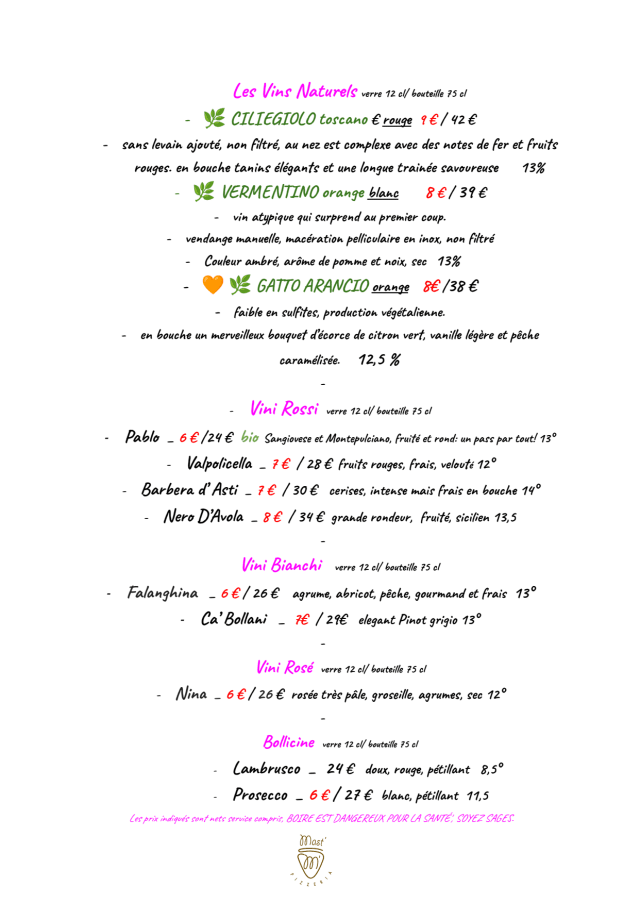 Les Vins Naturels verre 12 cl/ bouteille 75 cl
- 🌿 CILIEGIOLO toscano € rouge 9 € / 42 €
- sans levain ajouté, non filtré, au nez est complexe avec des notes de fer et fruits
rouges. en bouche tanins élégants et une longue trainée savoureuse 13%
- 🌿 VERMENTINO orange blanc 8 € / 39 €
- vin atypique qui surprend au premier coup.
- vendange manuelle, macération pelliculaire en inox, non filtré
- Couleur ambré, arôme de pomme et noix, sec 13%
- 🧡 🌿 GATTO ARANCIO orange 8€ /38 €
- faible en sulfites, production végétalienne.
- en bouche un merveilleux bouquet d'écorce de citron vert, vanille légère et pêche
caramélisée. 12,5 %
-
- Vini Rossi verre 12 cl/ bouteille 75 cl
- Pablo _ 6 € /24 € bio Sangiovese et Montepulciano, fruité et rond: un pass par tout! 13°
- Valpolicella _ 7 € / 28 € fruits rouges, frais, velouté 12°
- Barbera d'Asti _ 7 € / 30 € cerises, intense mais frais en bouche 14°
- Nero D'Avola _ 8 € / 34 € grande rondeur, fruité, sicilien 13,5
-
Vini Bianchi verre 12 cl/ bouteille 75 cl
- Falanghina _ 6 € / 26 € agrume, abricot, pêche, gourmand et frais 13°
- Ca' Bollani _ 7€ / 29€ elegant Pinot grigio 13°
-
Vini Rosé verre 12 cl/ bouteille 75 cl
- Nina _ 6 € / 26 € rosée très pâle, groseille, agrumes, sec 12°
-
Bollicine verre 12 cl/ bouteille 75 cl
- Lambrusco _ 24 € doux, rouge, pétillant 8,5°
- Prosecco _ 6 € / 27 € blanc, pétillant 11,5
Les prix indiqués sont nets service compris, BOIRE EST DANGEREUX POUR LA SANTÉ; SOYEZ SAGES.
Mast'
M'
PIZZERIA